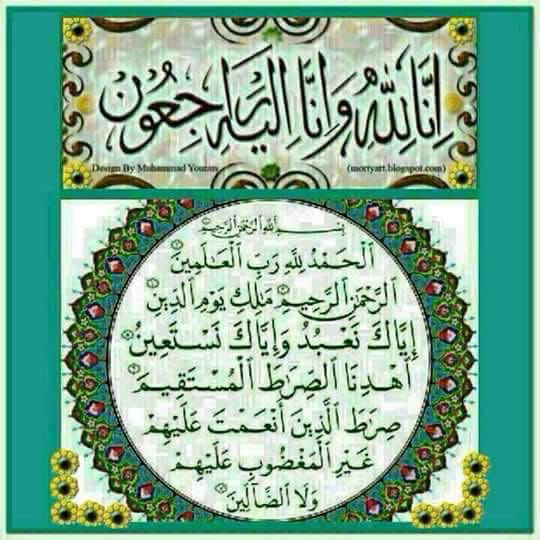 اِنَّا لِلّٰهِ وَاِنَّا اِلَيْهِ رَاجِعُوْنَ
Design By Muhammad Younus
(mortyart.blogspot.com)
بِسْمِ ٱللَّهِ ٱلرَّحْمَٰنِ ٱلرَّحِيمِ ۝١
ٱلْحَمْدُ لِلَّهِ رَبِّ ٱلْعَٰلَمِينَ ۝٢
ٱلرَّحْمَٰنِ ٱلرَّحِيمِ ۝٣ مَٰلِكِ يَوْمِ ٱلدِّينِ ۝٤
إِيَّاكَ نَعْبُدُ وَإِيَّاكَ نَسْتَعِينُ ۝٥
ٱهْدِنَا ٱلصِّرَٰطَ ٱلْمُسْتَقِيمَ ۝٦
صِرَٰطَ ٱلَّذِينَ أَنْعَمْتَ عَلَيْهِمْ
غَيْرِ ٱلْمَغْضُوبِ عَلَيْهِمْ
وَلَا ٱلضَّآلِّينَ ۝٧